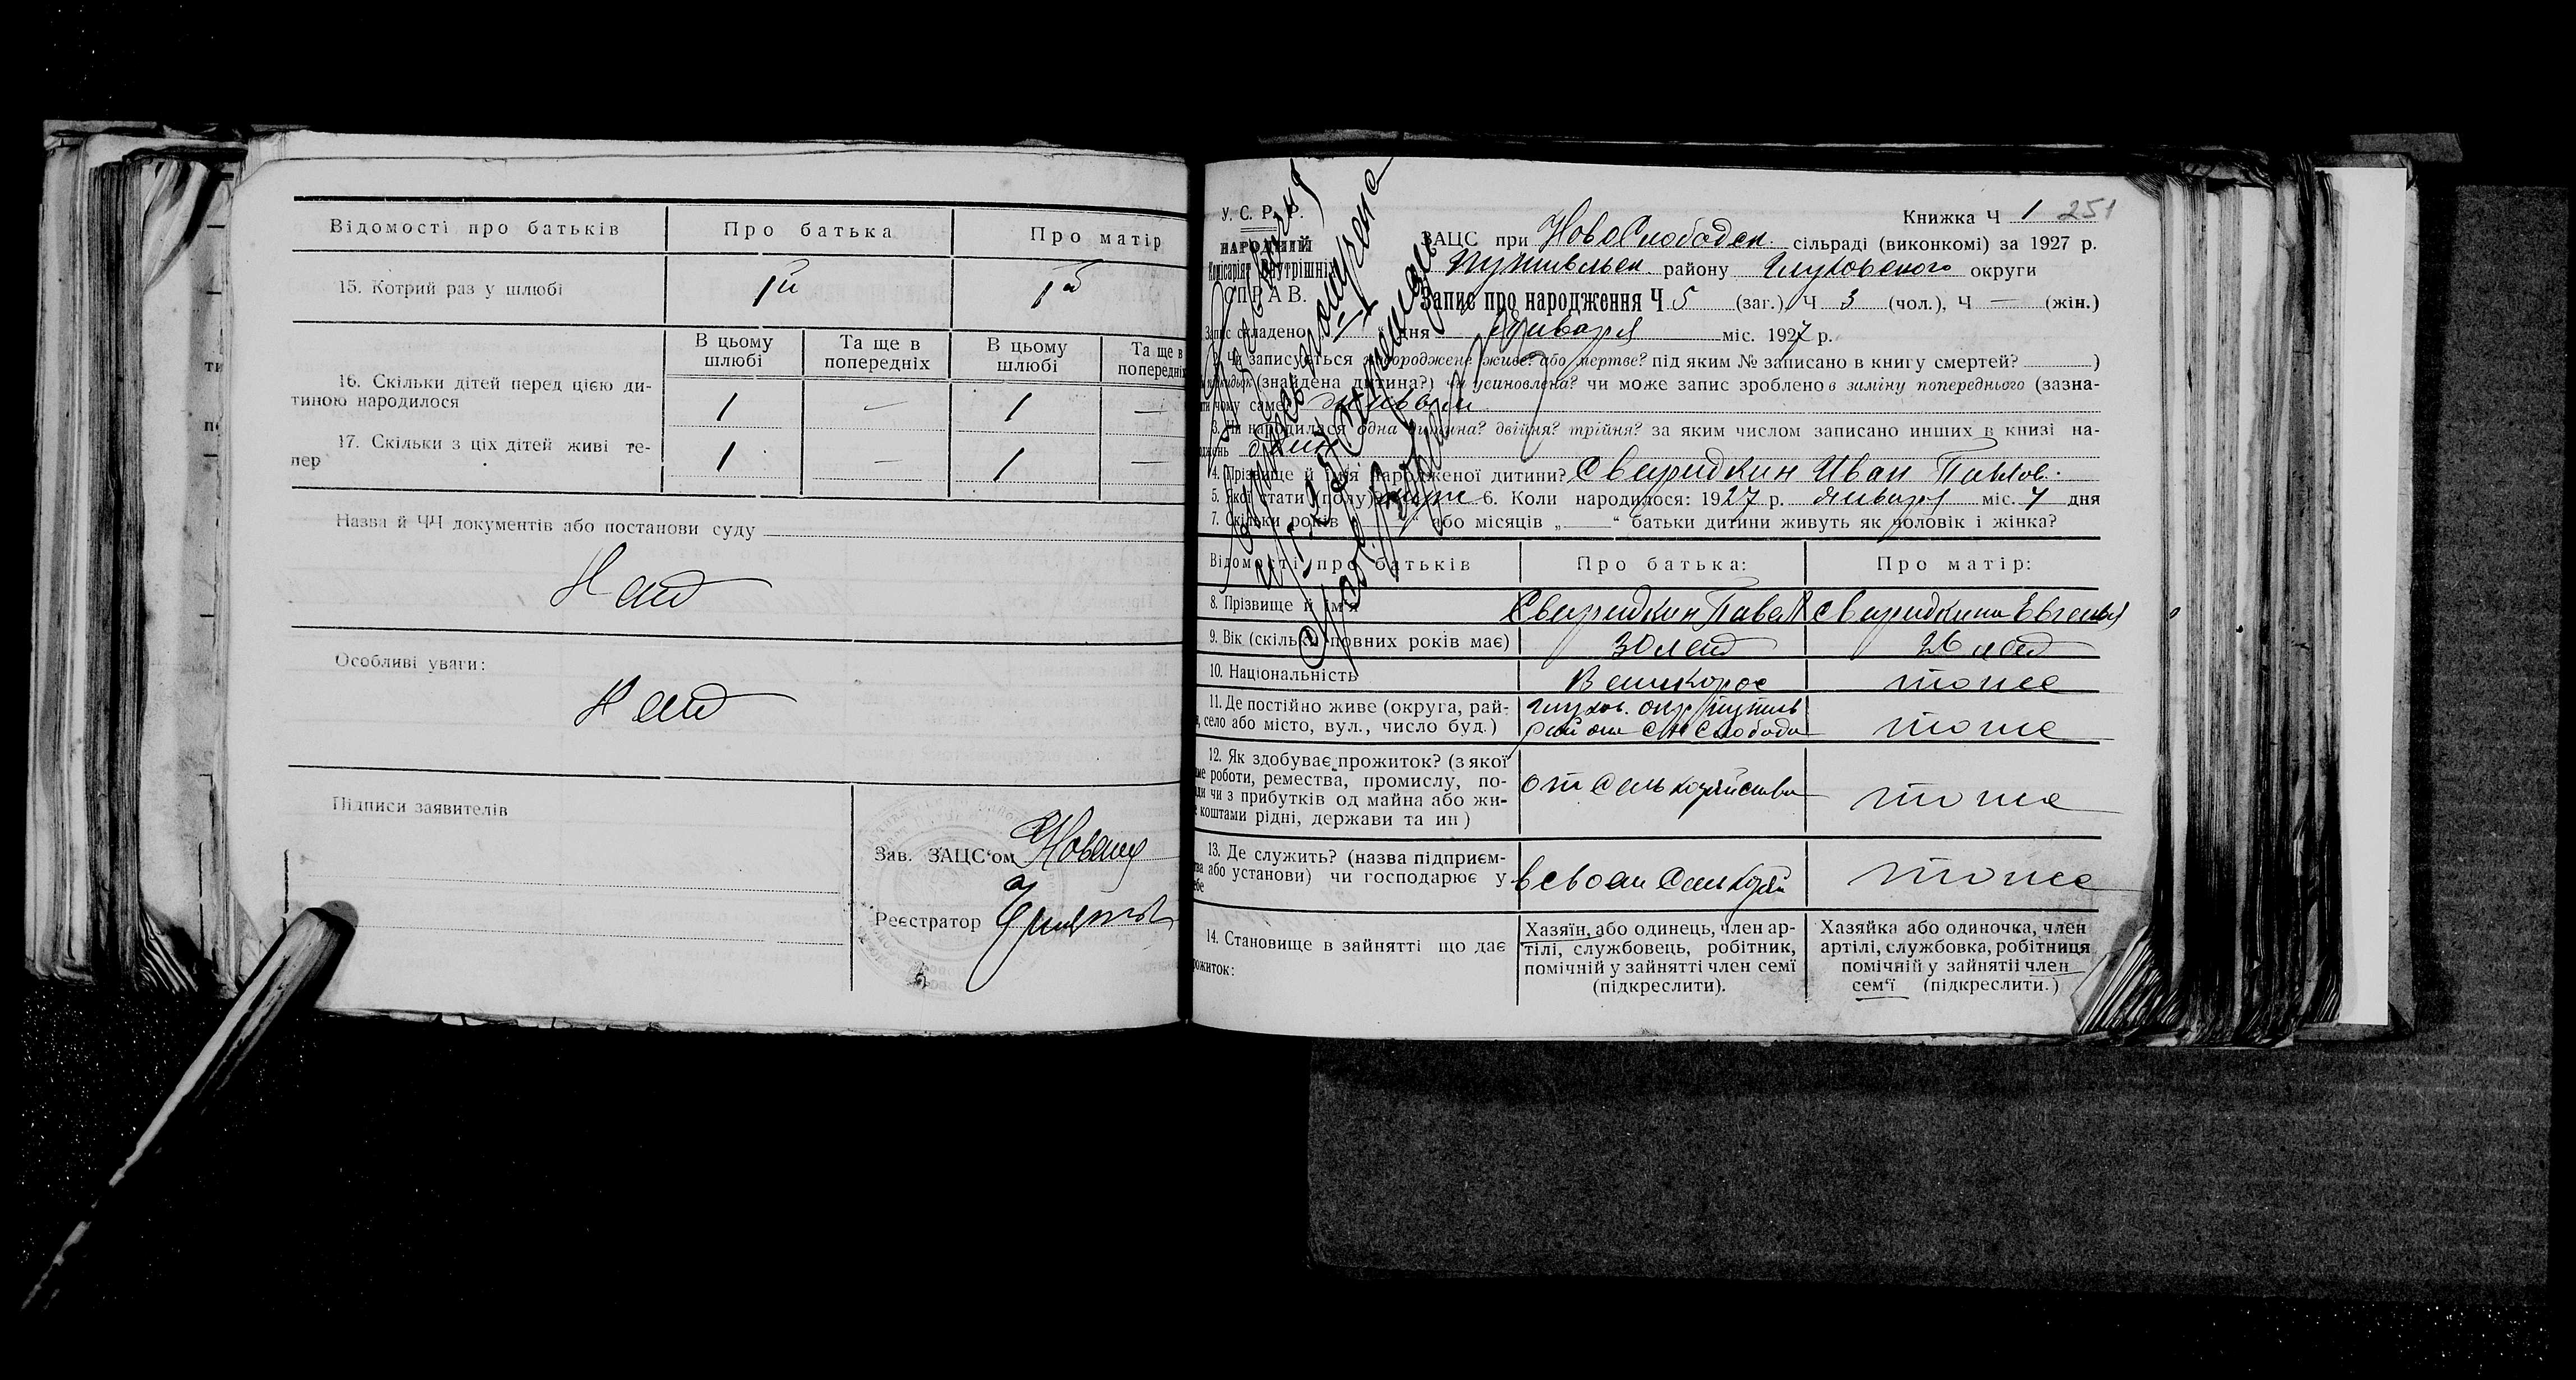 Відомості про батьків
Про батька
Про матір
15. Котрий раз у шлюбі
1й
1й
В цьому шлюбі
Та ще в попередніх
В цьому шлюбі
Та ще в попередніх
16. Скільки дітей перед цією ди-
тиною народилося
1
—
1
—
17. Скільки з ціх дітей живі те-
пер
1
—
1
—
Назва й ЧЧ документів або постанови суду
Нет
Особливі уваги:
Нет
Підписи заявителів
Зав. ЗАЦС‘ом
Реєстратор
У. С. Р. Р.
НАРОДНІЙ
Комісаріят Внутрішніх
СПРАВ.
Книжка Ч 1 251
ЗАЦС при НовоСлободск. сільраді (виконкомі) за 1927 р.
Путивльск району Глуховского округи
Запис про народження Ч 5 (заг.), Ч 3 (чол.), Ч — (жін.)
Запис складено дня Января міс. 1927 р.
2. Чи записується новороджене живе? або мертве? під яким № записано в книгу смертей? )
(знайдена дитина?) чи усиновлена? чи може запис зроблено в заміну попереднього (зазна-
чому саме) живым
3. Чи народилася одна дитина? двійня? трійня? за яким числом записано инших в книзі на-
один
4. Прізвище й ім‘я народженої дитини? Сваридкин Иван Павлов.
5. Якої стати (полу) 6. Коли народилося: 1927 р. Января міс. 4 дня
7. Скільки років „ “ або місяців „——“ батьки дитини живуть як чоловік і жінка?
Відомості про батьків
Про батька:
Про матір:
8. Прізвище й ім‘я
Сваридкин Павел
Сваридкина Евгения
9. Вік (скільки повних років має)
30 лет
26 лет
10. Національність
Великорос
тоже
11. Де постійно живе (округа, рай-
село або місто, вул., число буд.)
Глухов. окр Путивль
района с Н Слобода
тоже
12. Як здобуває прожиток? (з якої
роботи, ремества, промислу, по-
чи з прибутків од майна або жи-
коштами рідні, держави та ин)
от сельхозяйства
тоже
13. Де служить? (назва підприєм-
або установи) чи господарює у
в своем сельхозяй
тоже
14. Становище в зайнятті що дає
прожиток:
Хазяїн, або одинець, член ар-
тілі, службовець, робітник,
помічній у зайнятті член семї
(підкреслити).
Хазяйка або одиночка, член
артілі, службовка, робітниця
помічній у зайнятії член
сем‘ї (підкреслити.)